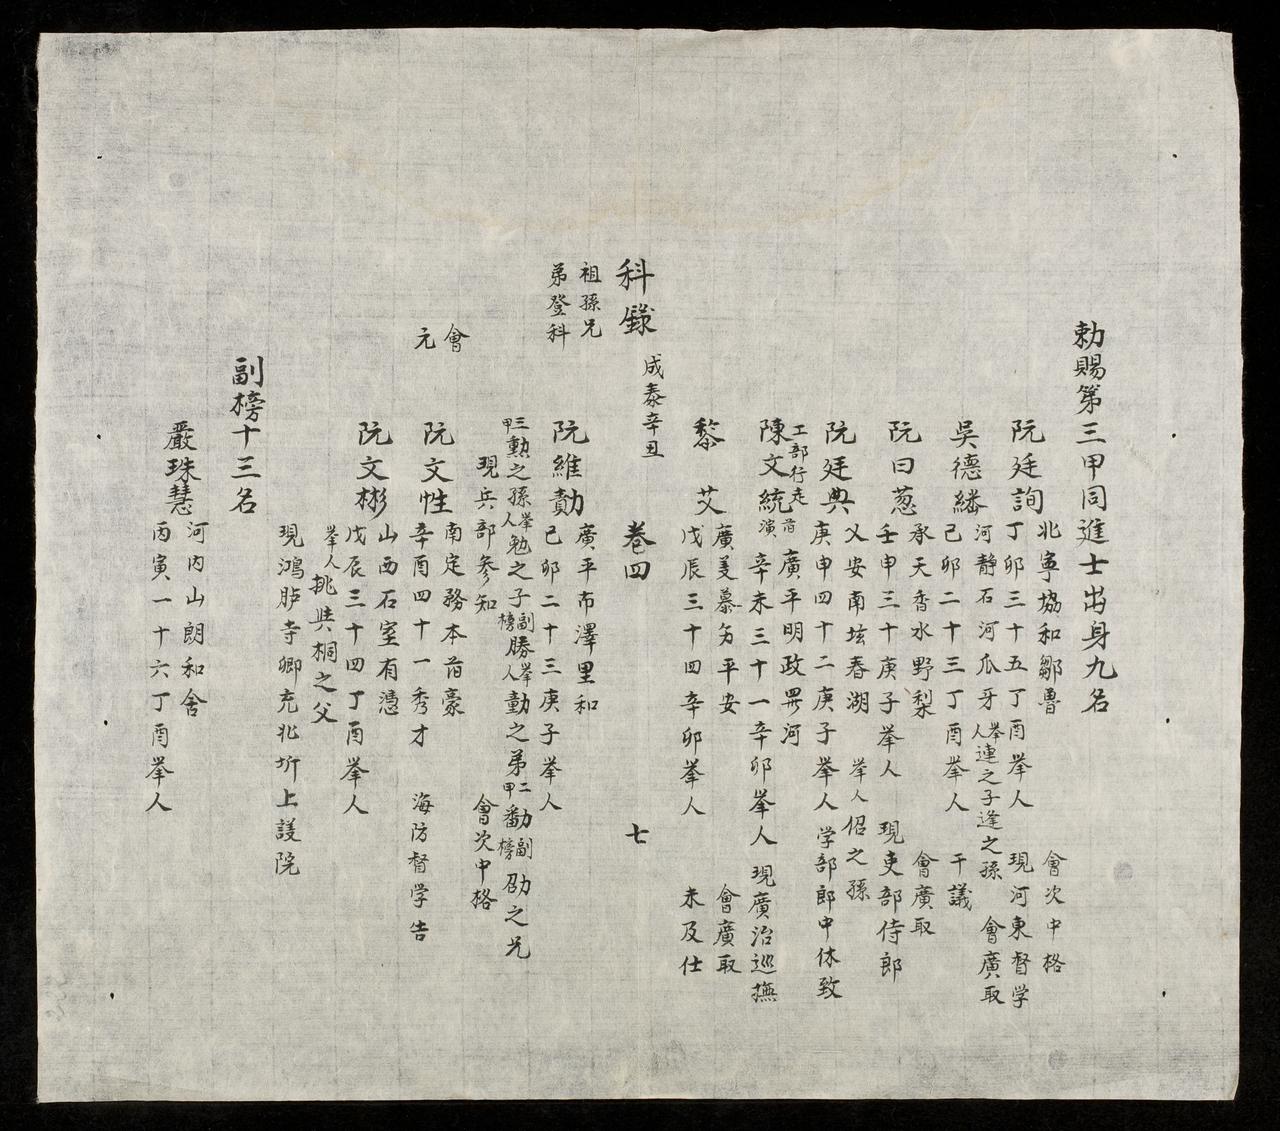 勅賜第三甲同進士出身九名
阮廷詢
北寧協和鄒魯
會次中格
丁卯三十五丁酉挙人
現河東督学
吳德繙
河静石河瓜牙
挙人連之子逢之孫
會廣取
己卯二十三丁酉挙人
干議
阮曰葱
承天香水野梨
會廣取
壬申三十庚子挙人
現吏部侍郎
阮廷典
乂安南坛春湖
挙人
侶之孫
庚申四十二庚子挙人
学部郎中休致
工部行走
陳文統
廣平明政畀河
辛未三十一辛卯挙人
現廣治巡撫
黎艾
廣美慕平安
會廣取
戊辰三十四辛卯挙人
未及仕
科錄
成泰辛丑
卷四
七
祖孫兄弟登科
阮維勣
廣平布澤里和
己卯二十三庚子挙人
三甲勲之孫挙人勉之子副榜勝挙人勤之弟二甲勸副榜劭之兄
現兵部參知
會次中格
會元
阮文性
南定務本莒豪
辛酉四十一秀才
海防督学告
阮文彬
山西石室有憑
戊辰三十四丁酉挙人
挙人挑與桐之父
現鴻胪寺卿充北圻上議院
副榜十三名
嚴珠慧
河内山朗和舍
丙寅一十六丁酉挙人